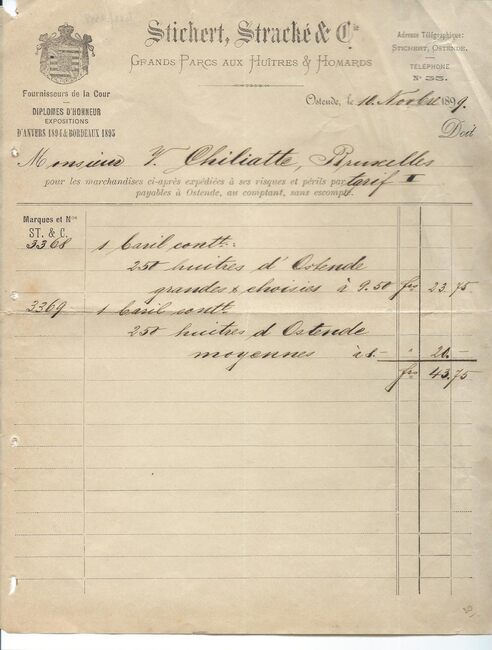 Stichert, Stracké & Cie
Grands Parcs aux Huîtres & Homards
Adresse Télégraphique:
Stichert, Ostende.
TÉLÉPHONE
No 55.
Fournisseurs de la Cour
DIPLOMES D'HONNEUR
EXPOSITIONS
D'ANVERS 1894 & BORDEAUX 1895
Ostende, le 10 Novbre 1899.
Doit
Monsieur V. Ghiliatte, Bruxelles
pour les marchandises ci-après expédiées à ses risques et périls par tarif I
payables à Ostende, au comptant, sans escompte.
Marques et Nos
ST. & C.
3368 1 Baril contt.
250 huîtres d'Ostende
grandes & choisies à 9.50 frs 23.75
3369 1 Baril contt
250 huîtres d Ostende
moyennes à 8.- " 20.
frs 43.75